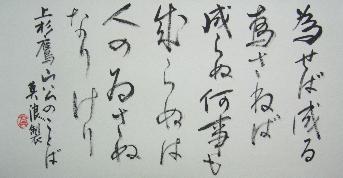 為せば成る
為さねば
成らぬ何事も
成らぬは
人の為さぬ
なりけり
上杉鷹山公のことば
莫浪製